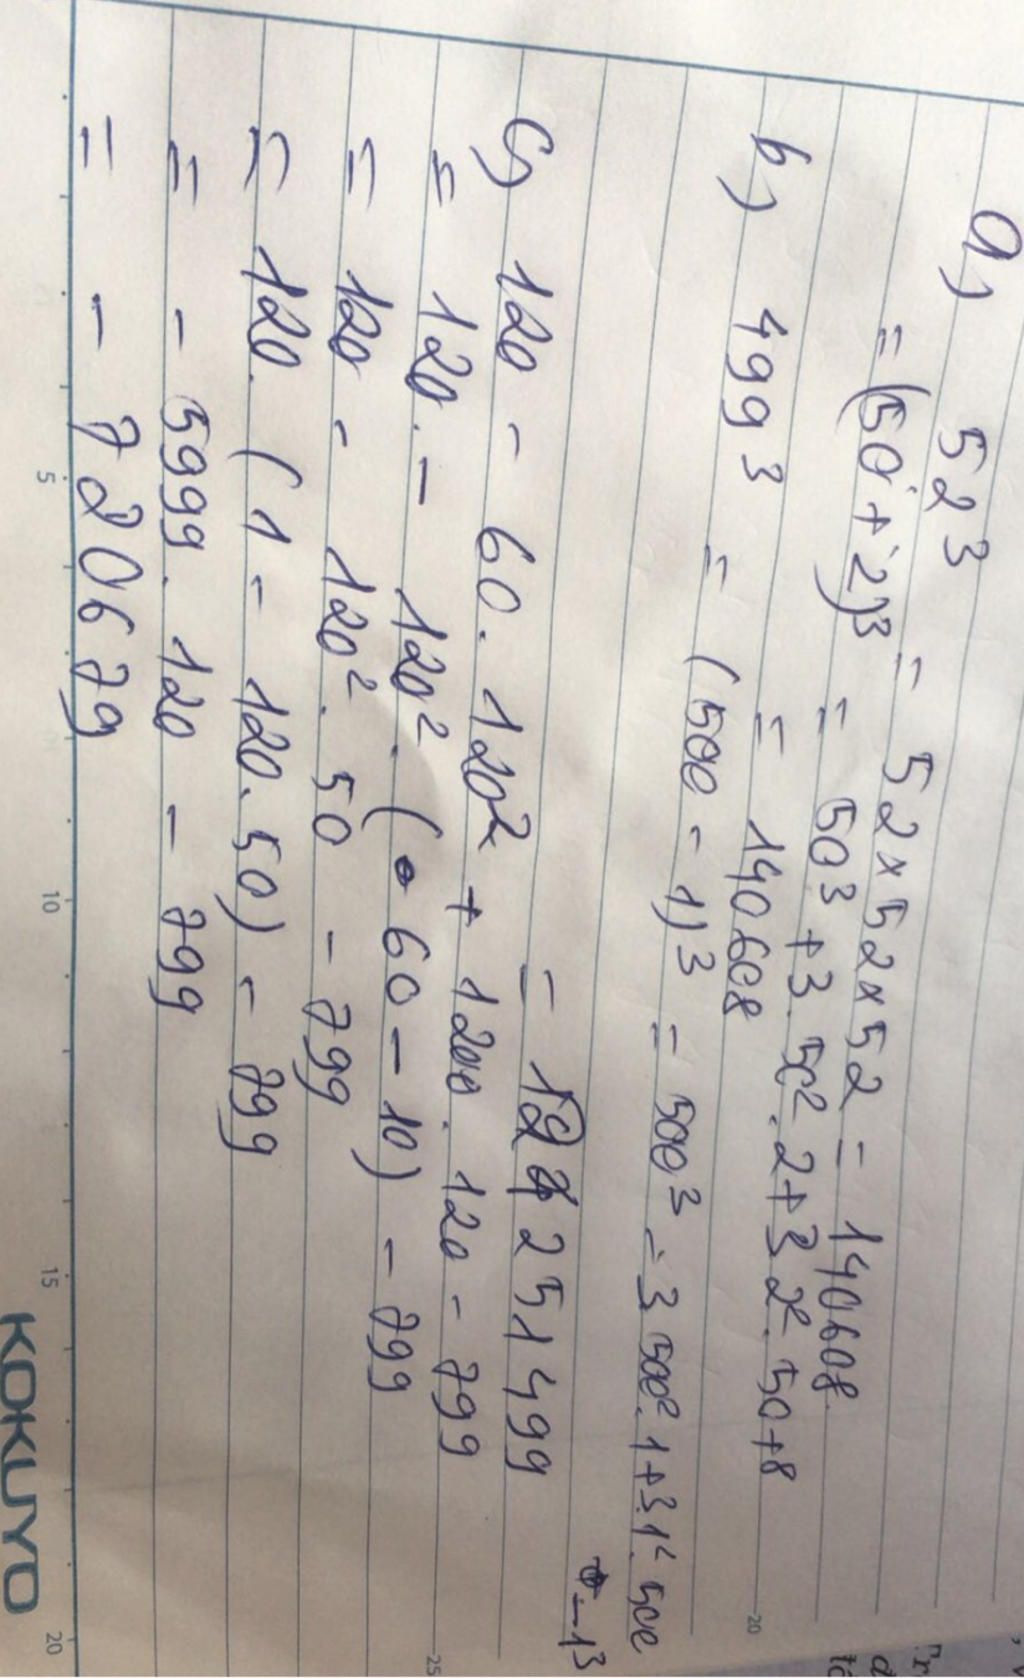 a) 52³ = 52×52×52 = 140608
= (50+2)³ = 50³ + 3.50².2+3 2².50+8
= 140608
b) 499³ = (500 - 1)³ = 500³ - 3 500².1+3.1².500
-1³
= 124251499
c) 120 - 60.120² + 1200.120 - 799
= 120. - 120².(60 - 10) - 799
= 120 - 120².50 - 799
= 120.(1 - 120.50) - 799
= - 5999.120 - 799
= - 720679
5
10
15
20
20
25
KOKUYO